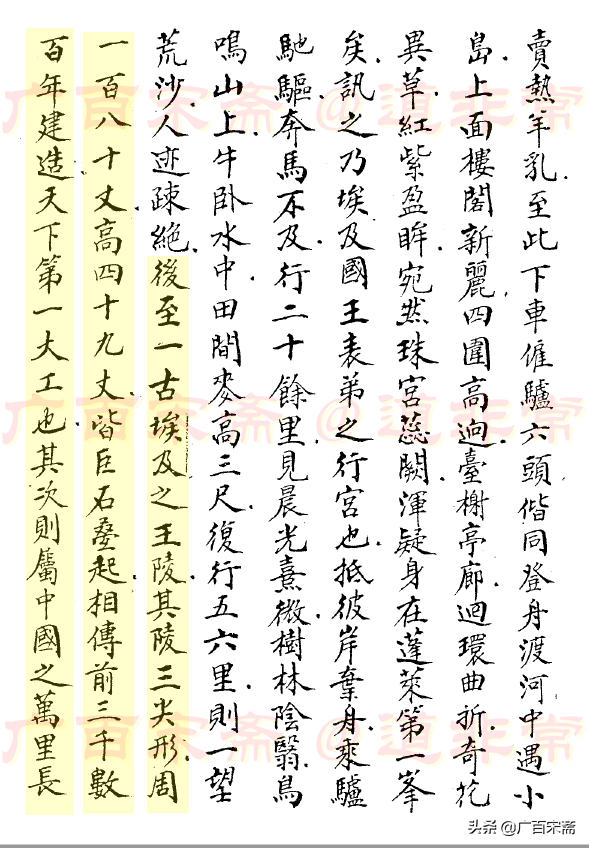 賣熱羊乳至此下車僱驢六頭偕同登舟渡河中遇小
島上面樓閣新麗四圍高逈臺榭亭廊迴環曲折奇花
異草紅紫盈眸宛然珠宮蕊闕渾疑身在蓬萊第一峯
矣訊之乃埃及國王表弟之行宮也抵彼岸棄舟乘驢
馳驅奔馬不及行二十餘里見晨光熹微樹林陰翳鳥
鳴山上牛臥水中田間麥高三尺復行五六里則一望
荒沙人迹疎絕後至一古埃及之王陵其陵三尖形周
一百八十丈高四十九丈皆巨石叠起相傳前三千數
百年建造天下第一大工也其次則屬中國之萬里長
广百宋斋 @道非常
广百宋斋 @道非常
广百宋斋 @道非常
头条 @广百宋斋